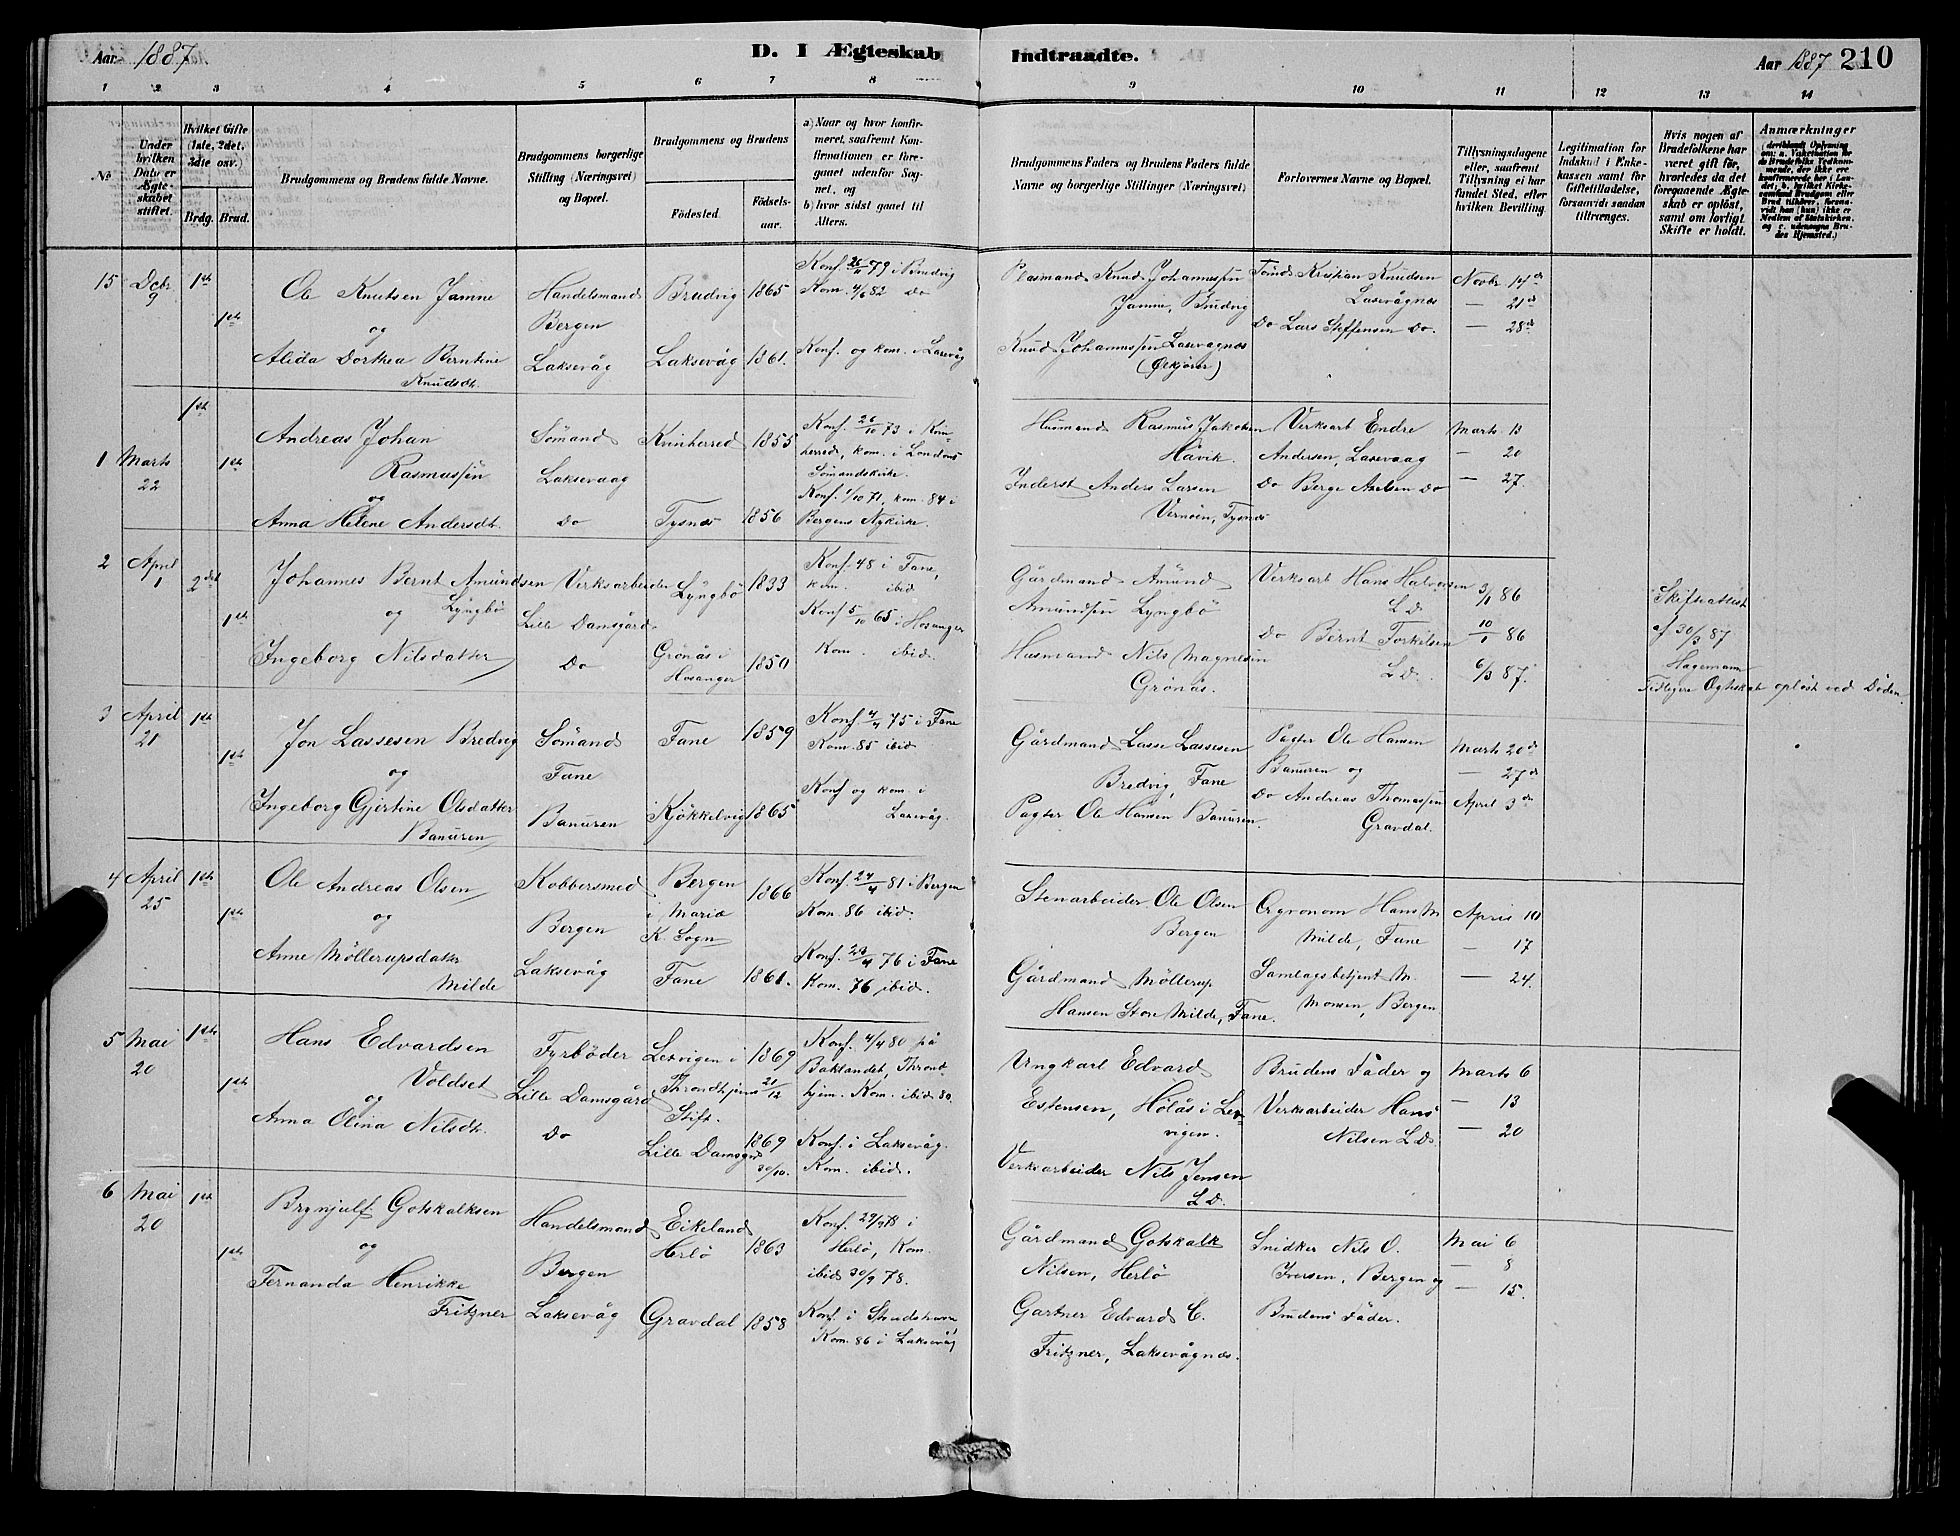 Aar 1887
D. I Ægteskab Indtraadte.
Aar 1887 210
1 2 3 4 5 6 7 8 9 10 11 12 13 14
No
Under hvilken Datu er Ægteskabet stiftet.
Hvilket Gifte (1ste, 2det, 3die osv.)
Brdg. Brud.
Brudgommens og Brudens fulde Navne.
Brudgommens borgerlige Stilling (Næringsvei) og Bopæl.
Brudgommens og Brudens
Fødested. Fødselsaar.
a) Naar og hvor konfirmeret, saafremt Konfirmationen er foregaaet udenfor Sognet, og
b) hvor sidst gaaet til Alters.
Brudgommens Faders og Brudens Faders fulde Navne og borgerlige Stillinger (Næringsvei)
Forlovernes Navne og Bopæl.
Tillysningsdagene eller, saafremt Tillysning ei har fundet Sted, efter hvilken Bevilling.
Legitimation for Indskud i Enkekassen samt for Giftetilladelse, forsaavidt saadan tiltrænges.
Hvis nogen af Brudefolkene har været gift før, hvorledes da det foregaaende Ægteskab er opløst, samt om lovligt Skifte er holdt.
Anmærkninger
15 Debr 9 1ste 1ste
Ole Knutsen Jamne
og
Alida Dorthea Berntine
Knudsdt.
Handelsmand
Bergen
Laksevåg
Brudvig 1865
Laksevåg 1861.
Konf. 26/11 79 i Brudvig
Kom. 4/6 82 do
Konf. og kom. i Laxevåg
Plasmand Knud Johannessen
Jamne, Brudvig
Knud Johannessen Laxevagnes
Kristian Knudsen
Laxevågnes
Do Lars Steffensen Do.
Novbr 14de
— 21de
— 28de
1 Marts 22 1ste 1ste
Andreas Johan
Rasmussen
og
Anna Helene Andersdt.
Sömand
Laksevaag
Do
Kvinherred 1855
Tysnes 1856
Konf. 26/10 73 i Kvin-
herred, kom. i Londons
Sömandskirke.
Konf. 1/10 71, kom. 84 i
Bergens Nykirke.
Husmand Rasmus Jakobsen
Håvik.
Inderst Anders Larsen
Vernöen, Tysnes
Verksarb Endre
Andersen, Laxevaag
Do Berge Axelsen Do
Marts 13
— 20
— 27.
2 April 1 2det 1ste
Johannes Bernt Amundsen
og Lyngbö
Ingeborg Nilsdatter
Verksarbeider
Lille Damsgård
Do
Lyngbö 1833
Grönås i
Hosanger 1850
Konf. 48 i Fane,
kom. ibid
Konf 5/10 65 i Hosanger
Kom. ibid.
Gårdmand Amund
Amundsen Lyngbö
Husmand Nils Magnesen
Grönås.
Verksarb Hans Halvorsen
L D.
Do Bernt Torkilsen
L D.
3/1 86
10/1 86
6/3 87.
Skifteattest
af 30/3 87
Hagemann
Tidligere Ægteskab oplöst ved Döden
3 April 21 1ste 1ste
Jon Lassesen Bredvig
og
Ingeborg Gjertine Olsdatter
Banuren
Sömand
Fane
Banuren
Fane 1859
Kjökkelvig 1865
Konf. 4/4 75 i Fane
Kom. 85 ibid
Konf og kom. i
Laxevåg.
Gårdmand Lasse Lassesen
Bredvig Fane
Pagter Ole Hansen Banuren.
Pagter Ole Hansen
Banuren og
Do Andreas Thomassen
Gravdal.
Marts 20de
— 27de
April 3de
4 April 25 1ste 1ste
Ole Andreas Olsen
og
Anne Möllerupsdatter
Milde
Kobbersmed
Bergen
Laksevåg
Bergen
i Mariæ
K. Sogn 1866
Fane 1861.
Konf. 24/4 81 i Bergen
Kom. 86 ibid.
Konf. 23/4 76 i Fane
Kom. 76 ibid.
Stenarbeider Ole Olsen
Bergen
Gårdmand Möllerup
Hansen Store Milde, Fane.
Agronom Hans M
Milde, Fane
Samlagsbetjent M.
Monsen, Bergen
April 10
— 17
— 24.
5 Mai 20 1ste 1ste
Hans Edvardsen
Voldset
og
Anna Olina Nilsdt.
Fyrböder
Lille Damsgård
Do
Lexvigen i
Throndhjems
Stift. 1869 21/12
Lille Damsgrd 1869 30/10.
Konf. 4/4 80 på
Baklandet, Thrond-
hjem. Kom. ibid 80.
Konf. i Laksevåg.
Kom. ibid.
Ungkarl Edvard
Estensen, Hölås i Lex-
vigen.
Verksarbeider Nils Jensen
L D.
Brudens Fader og
Verksarbeider Hans
Nilsen L D
Marts 6
— 13
— 20
6 Mai 20 1ste 1ste
Brynjulf Gotskalksen
og
Fernanda Henrikke
Fritzner
Handelsmand
Bergen
Laksevåg
Eikeland
Herlö 1863
Gravdal 1858
Konf. 29/9 78 i
Herlö, Kom.
ibid 30/9 78.
Konf. i Strudshavn
Kom. 86 i Laksevåg
Gårdmand Gotskalk
Nilsen, Herlö
Gartner Edvard C.
Fritzner, Laksevågnes.
Snidker Nils O.
Iversen, Bergen og
Brudens Fader.
Mai 6
— 8
— 15.